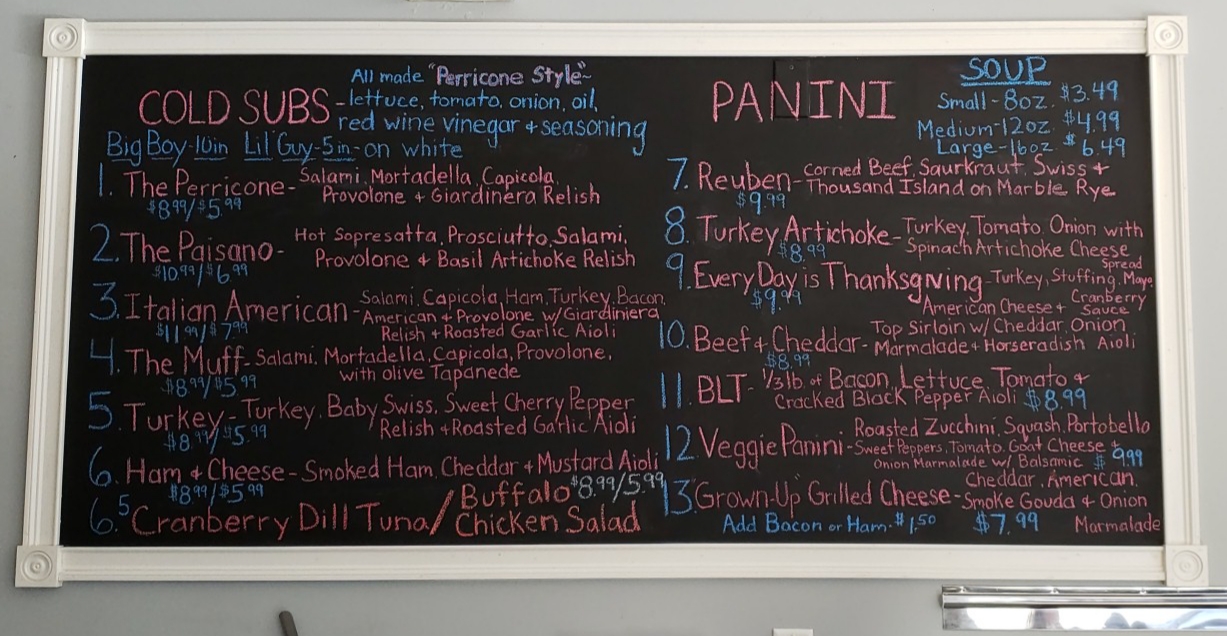 All made "Perricone Style"~
COLD SUBS - lettuce, tomato, onion, oil,
red wine vinegar + seasoning
Big Boy-10in Lil' Guy-5in-on white
1. The Perricone - Salami, Mortadella, Capicola,
Provolone + Giardinera Relish
$8.99/$5.99
2. The Paisano - Hot Sopresatta, Prosciutto, Salami,
Provolone + Basil Artichoke Relish
$10.99/$6.99
3. Italian American - Salami, Capicola, Ham, Turkey, Bacon,
American + Provolone w/Giardiniera
$11.99/$7.99 Relish + Roasted Garlic Aioli
4. The Muff - Salami, Mortadella, Capicola, Provolone,
with olive Tapanede
$8.99/$5.99
5. Turkey - Turkey, Baby Swiss, Sweet Cherry Pepper
Relish + Roasted Garlic Aioli
$8.99/$5.99
6. Ham + Cheese - Smoked Ham, Cheddar + Mustard Aioli
$8.99/$5.99
6.5 Cranberry Dill Tuna / Buffalo $8.99/5.99
Chicken Salad
PANINI
SOUP
Small - 8oz. $3.49
Medium-12oz. $4.99
Large-16oz $6.49
7. Reuben - Corned Beef, Saurkraut, Swiss +
Thousand Island on Marble Rye
$9.99
8. Turkey Artichoke - Turkey, Tomato, Onion with
$8.99 Spinach Artichoke Cheese
Spread
9. Every Day is Thanksgiving - Turkey, Stuffing, Mayo,
$9.99 American Cheese + Cranberry
Sauce
10. Beef + Cheddar - Top Sirloin w/ Cheddar, Onion
Marmalade + Horseradish Aioli
$8.99
11. BLT - 1/3 lb. of Bacon, Lettuce, Tomato +
Cracked Black Pepper Aioli $8.99
12. Veggie Panini - Roasted Zucchini, Squash, Portobello
Sweet Peppers, Tomato, Goat Cheese +
Onion Marmalade w/ Balsamic $9.99
13. "Grown-Up" Grilled Cheese - Cheddar, American,
Smoke Gouda + Onion
Marmalade
Add Bacon or Ham - $1.50 $7.99